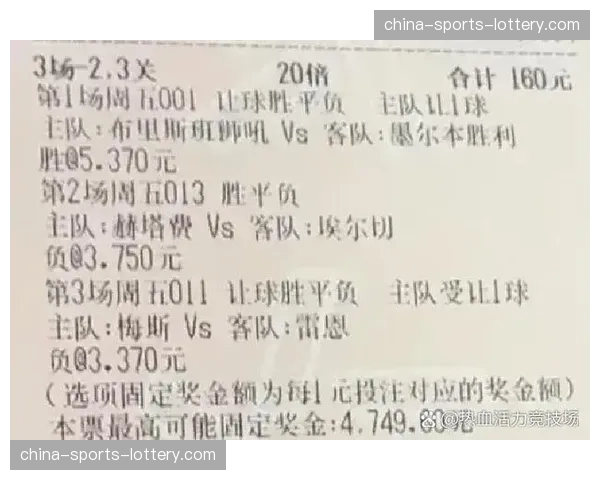 china-sports-lottery.com
3场-2.3关 20倍 合计 160元
第1场周五001 让球胜平负 主队让1球
主队:布里斯班狮吼 Vs 客队:墨尔本胜利
胜@5.370元
第2场周五013 胜平负
主队:赫塔费 Vs 客队:埃尔切
负@3.750元
第3场周五011 让球胜平负 主队受让1球
主队:梅斯 Vs 客队:雷恩
负@3.370元
(选项固定奖金额为每1元投注对应的奖金额)
本票最高可能固定奖金:4,749.60元
@热血活力竞技场
china-sports-lottery.com